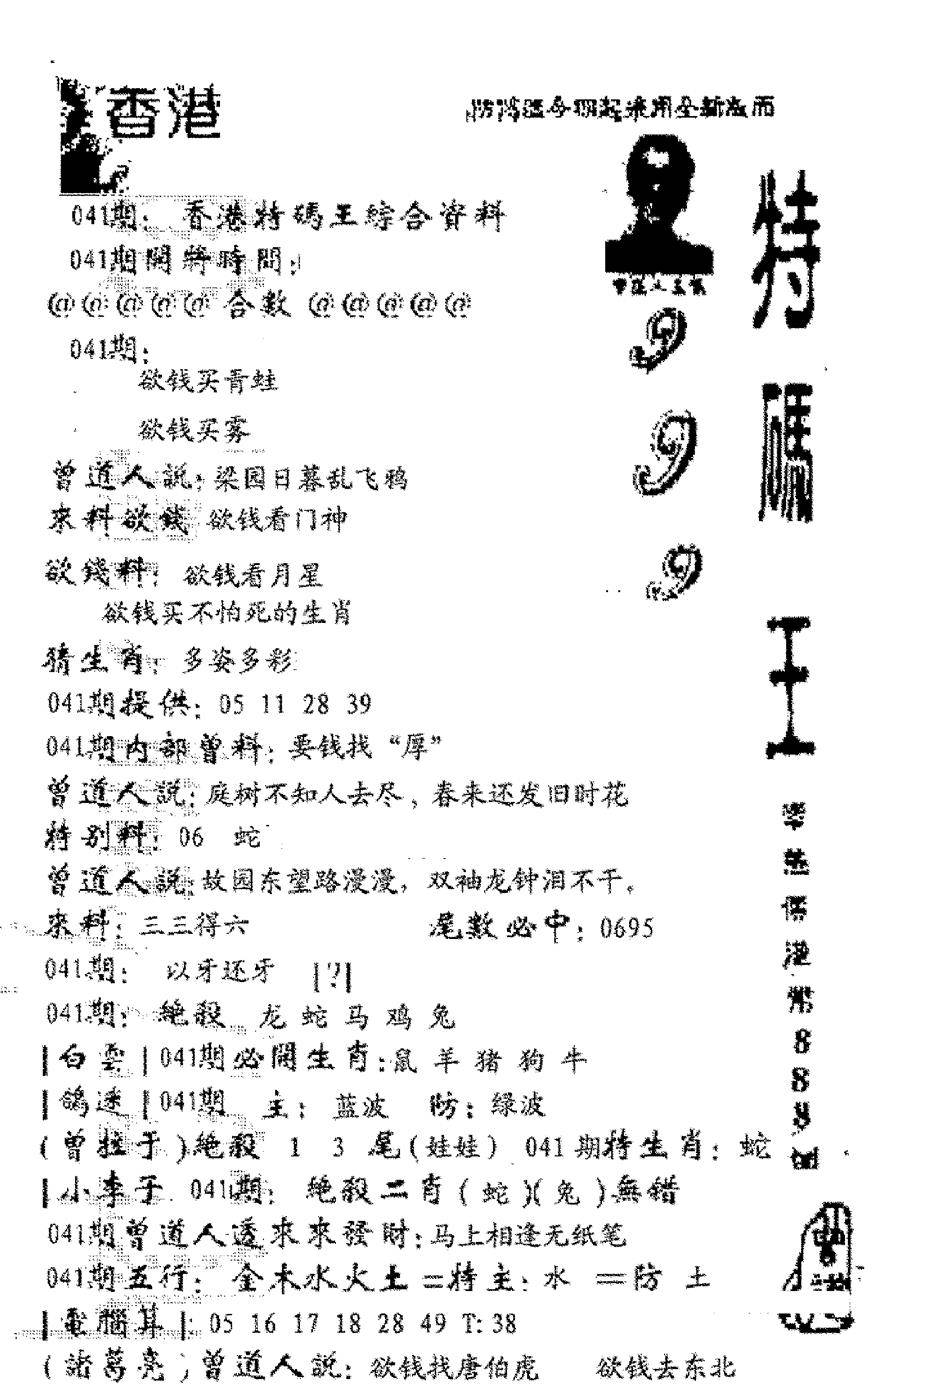 香港
特碼王
041期: 香港特碼王綜合資料
041期開將時間:
@@@@@ 合數 @@@@@
041期:
欲钱买青蛙
欲钱买雾
曾道人説: 梁园日暮乱飞鸦
來料欲錢 欲钱看门神
欲錢料: 欲钱看月星
欲钱买不怕死的生肖
猜生肖: 多姿多彩
041期提供: 05 11 28 39
041期内部曾料: 要钱找“厚”
曾道人説: 庭树不知人去尽, 春来还发旧时花
特别料: 06 蛇
曾道人説: 故园东望路漫漫, 双袖龙钟泪不干。
來料: 三三得六 尾數必中: 0695
041期: 以牙还牙 |?|
041期: 絶殺 龙 蛇 马 鸡 兔
|白雲|041期必開生肖:鼠 羊 猪 狗 牛
|鴿迷|041期 主: 蓝波 防: 绿波
(曾拉于)絶殺 1 3 尾(娃娃) 041期特生肖: 蛇
|小李子 041期: 絶殺二肖(蛇)(兔)無錯
041期曾道人透來來發財:马上相逢无纸笔
041期五行: 金木水火土=特主: 水 =防 土
|電腦算|: 05 16 17 18 28 49 T:38
(諸葛亮)曾道人説: 欲钱找唐伯虎 欲钱去东北
9
9
9
888